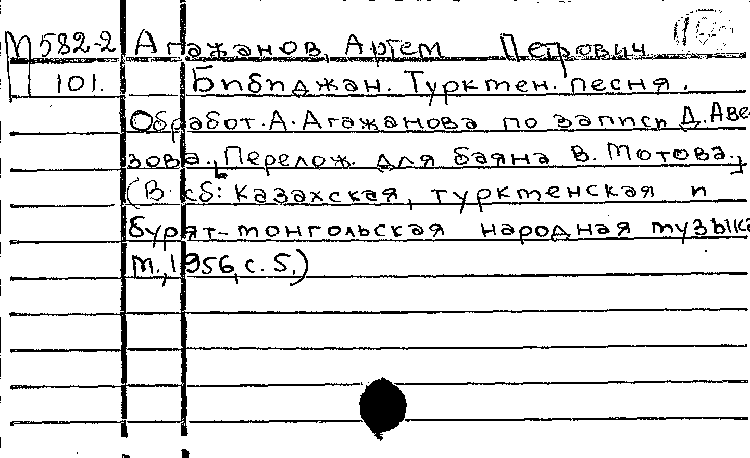 М 582-2 Агажанов, Артем Петрович
101. Бибиджан. Туркмен. песня.
Обработ. А. Агажанова по записи Д. Аве-
зова. [Перелож. для баяна В. Мотова.]
(В сб: Казахская, туркменская и
бурят-монгольская народная музыка
М., 1956, с. 5.)